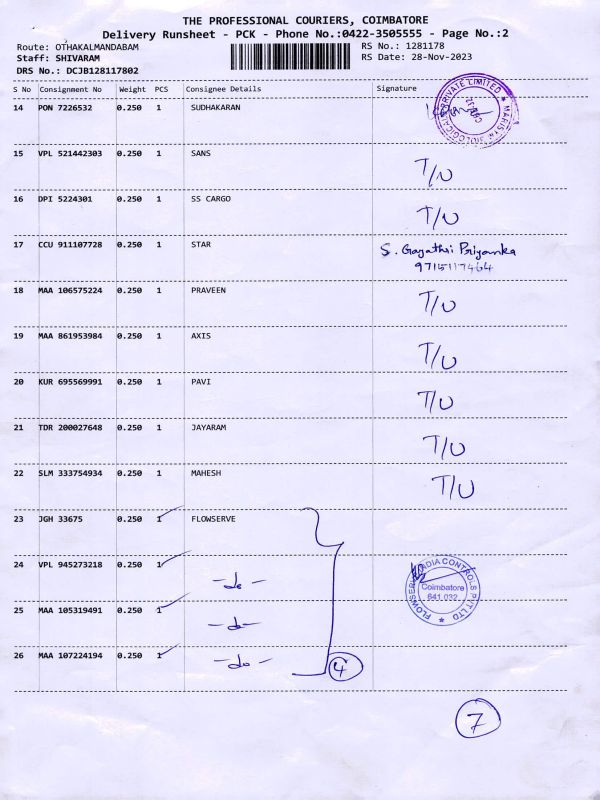 THE PROFESSIONAL COURIERS, COIMBATORE
Delivery Runsheet - PCK - Phone No.:0422-3505555 - Page No.:2
Route: OTHAKALMANDABAM RS No.: 1281178
Staff: SHIVARAM RS Date: 28-Nov-2023
DRS No.: DCJB128117802
S No Consignment No Weight PCS Consignee Details Signature
14 PON 7226532 0.250 1 SUDHAKARAN
15 VPL 521442303 0.250 1 SANS T/U
16 DPI 5224301 0.250 1 SS CARGO T/U
17 CCU 911107728 0.250 1 STAR S. Gayathri Priyanka
9715117464
18 MAA 106575224 0.250 1 PRAVEEN T/U
19 MAA 861953984 0.250 1 AXIS T/U
20 KUR 695569991 0.250 1 PAVI T/U
21 TDR 200027648 0.250 1 JAYARAM T/U
22 SLM 333754934 0.250 1 MAHESH T/U
23 JGH 33675 0.250 1 FLOWSERVE
24 VPL 945273218 0.250 1 -do-
FLOWSERVE INDIA CONTROLS PVT LTD
Coimbatore
641 032
25 MAA 105319491 0.250 1 -do-
26 MAA 107224194 0.250 1 -do- 4
7